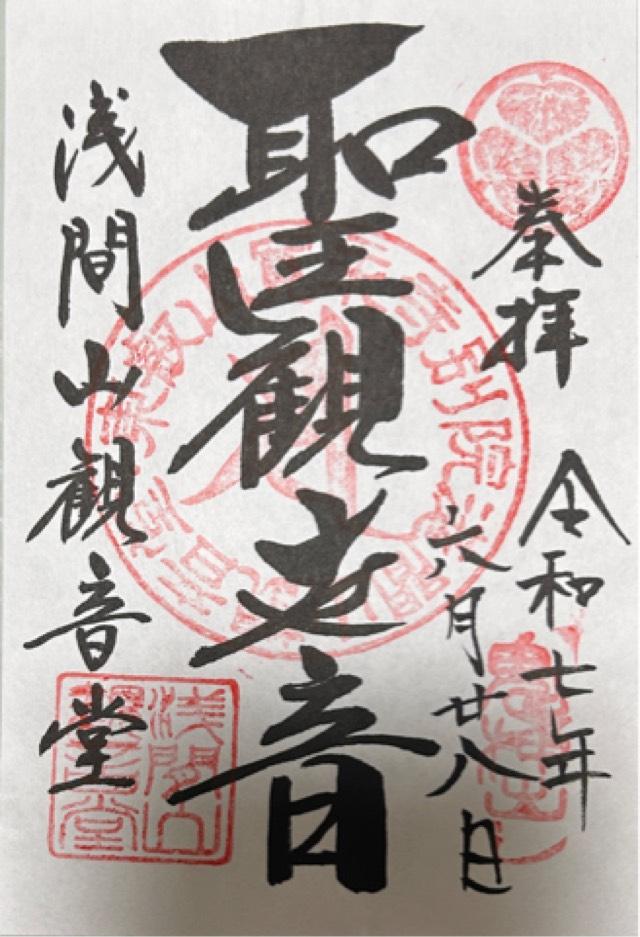 奉拝
令和七年
六月廿八日
聖観世音
浅間山観音堂
浅間山
観音堂